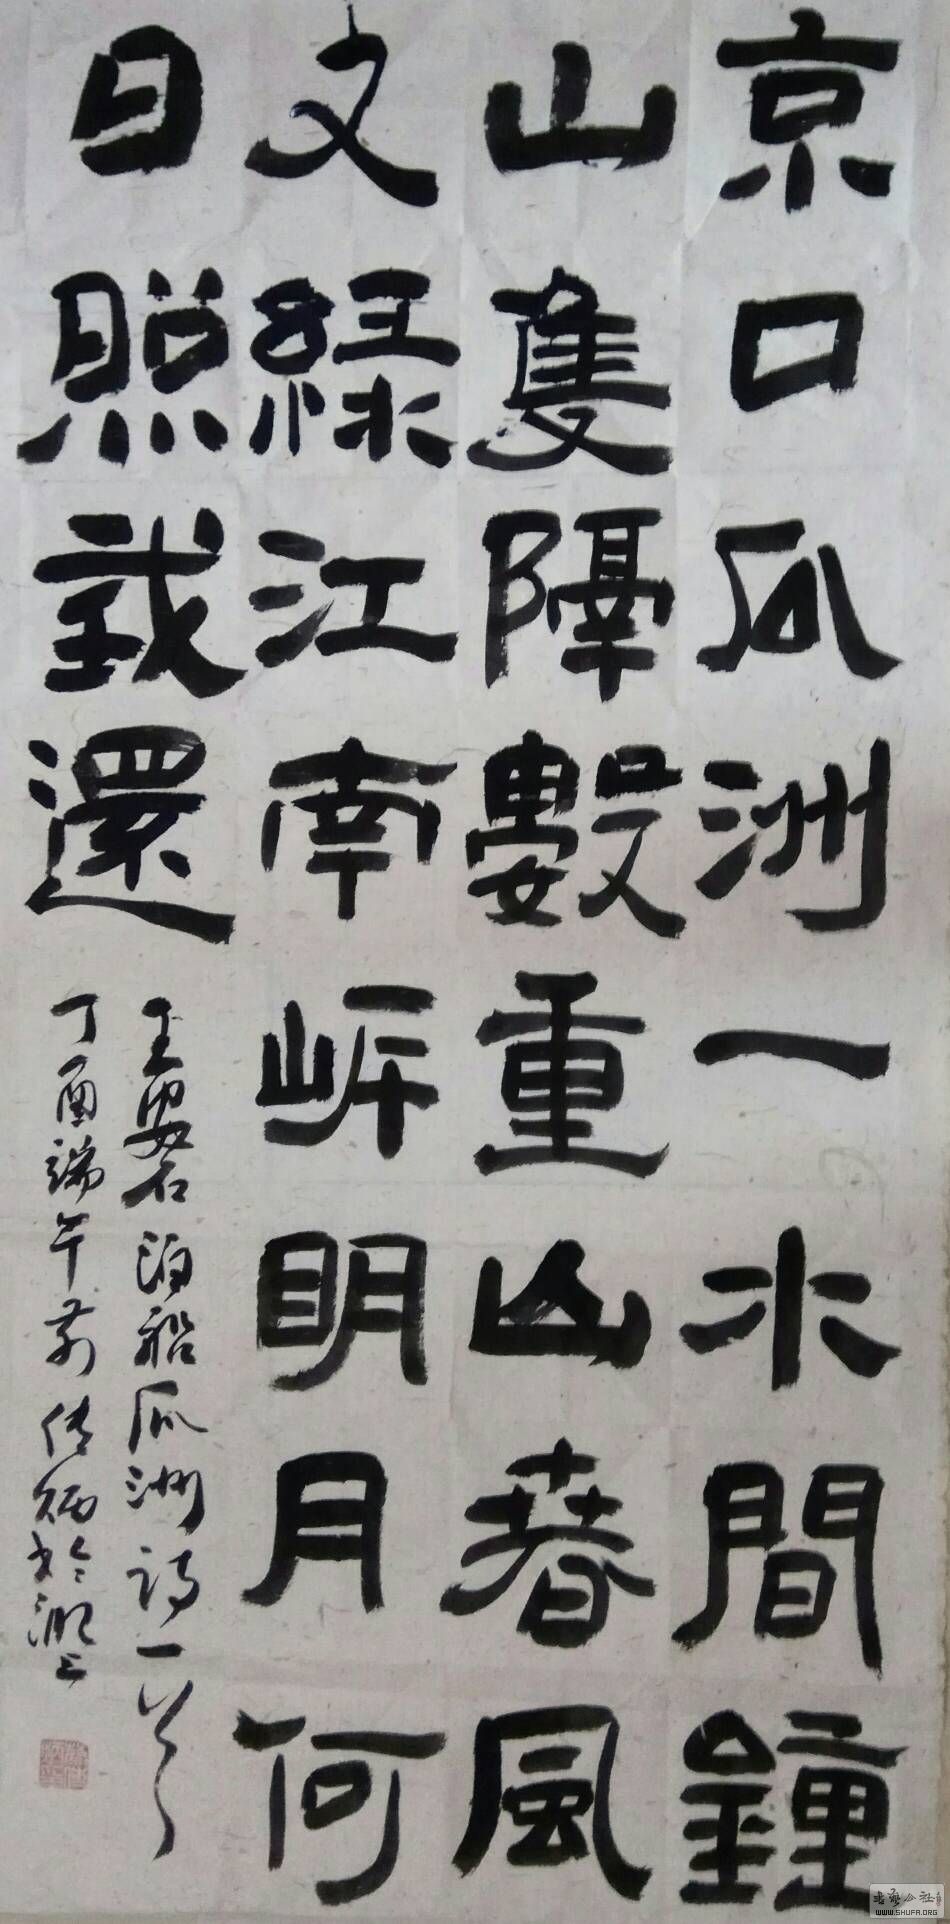 京口瓜洲一水間鐘
山隻隔數重山春風
又綠江南岸明月何
日照我還
王安石泊船瓜洲詩一首
丁酉端午前傳炳書於
書藝公社
WWW.SHUFA.ORG